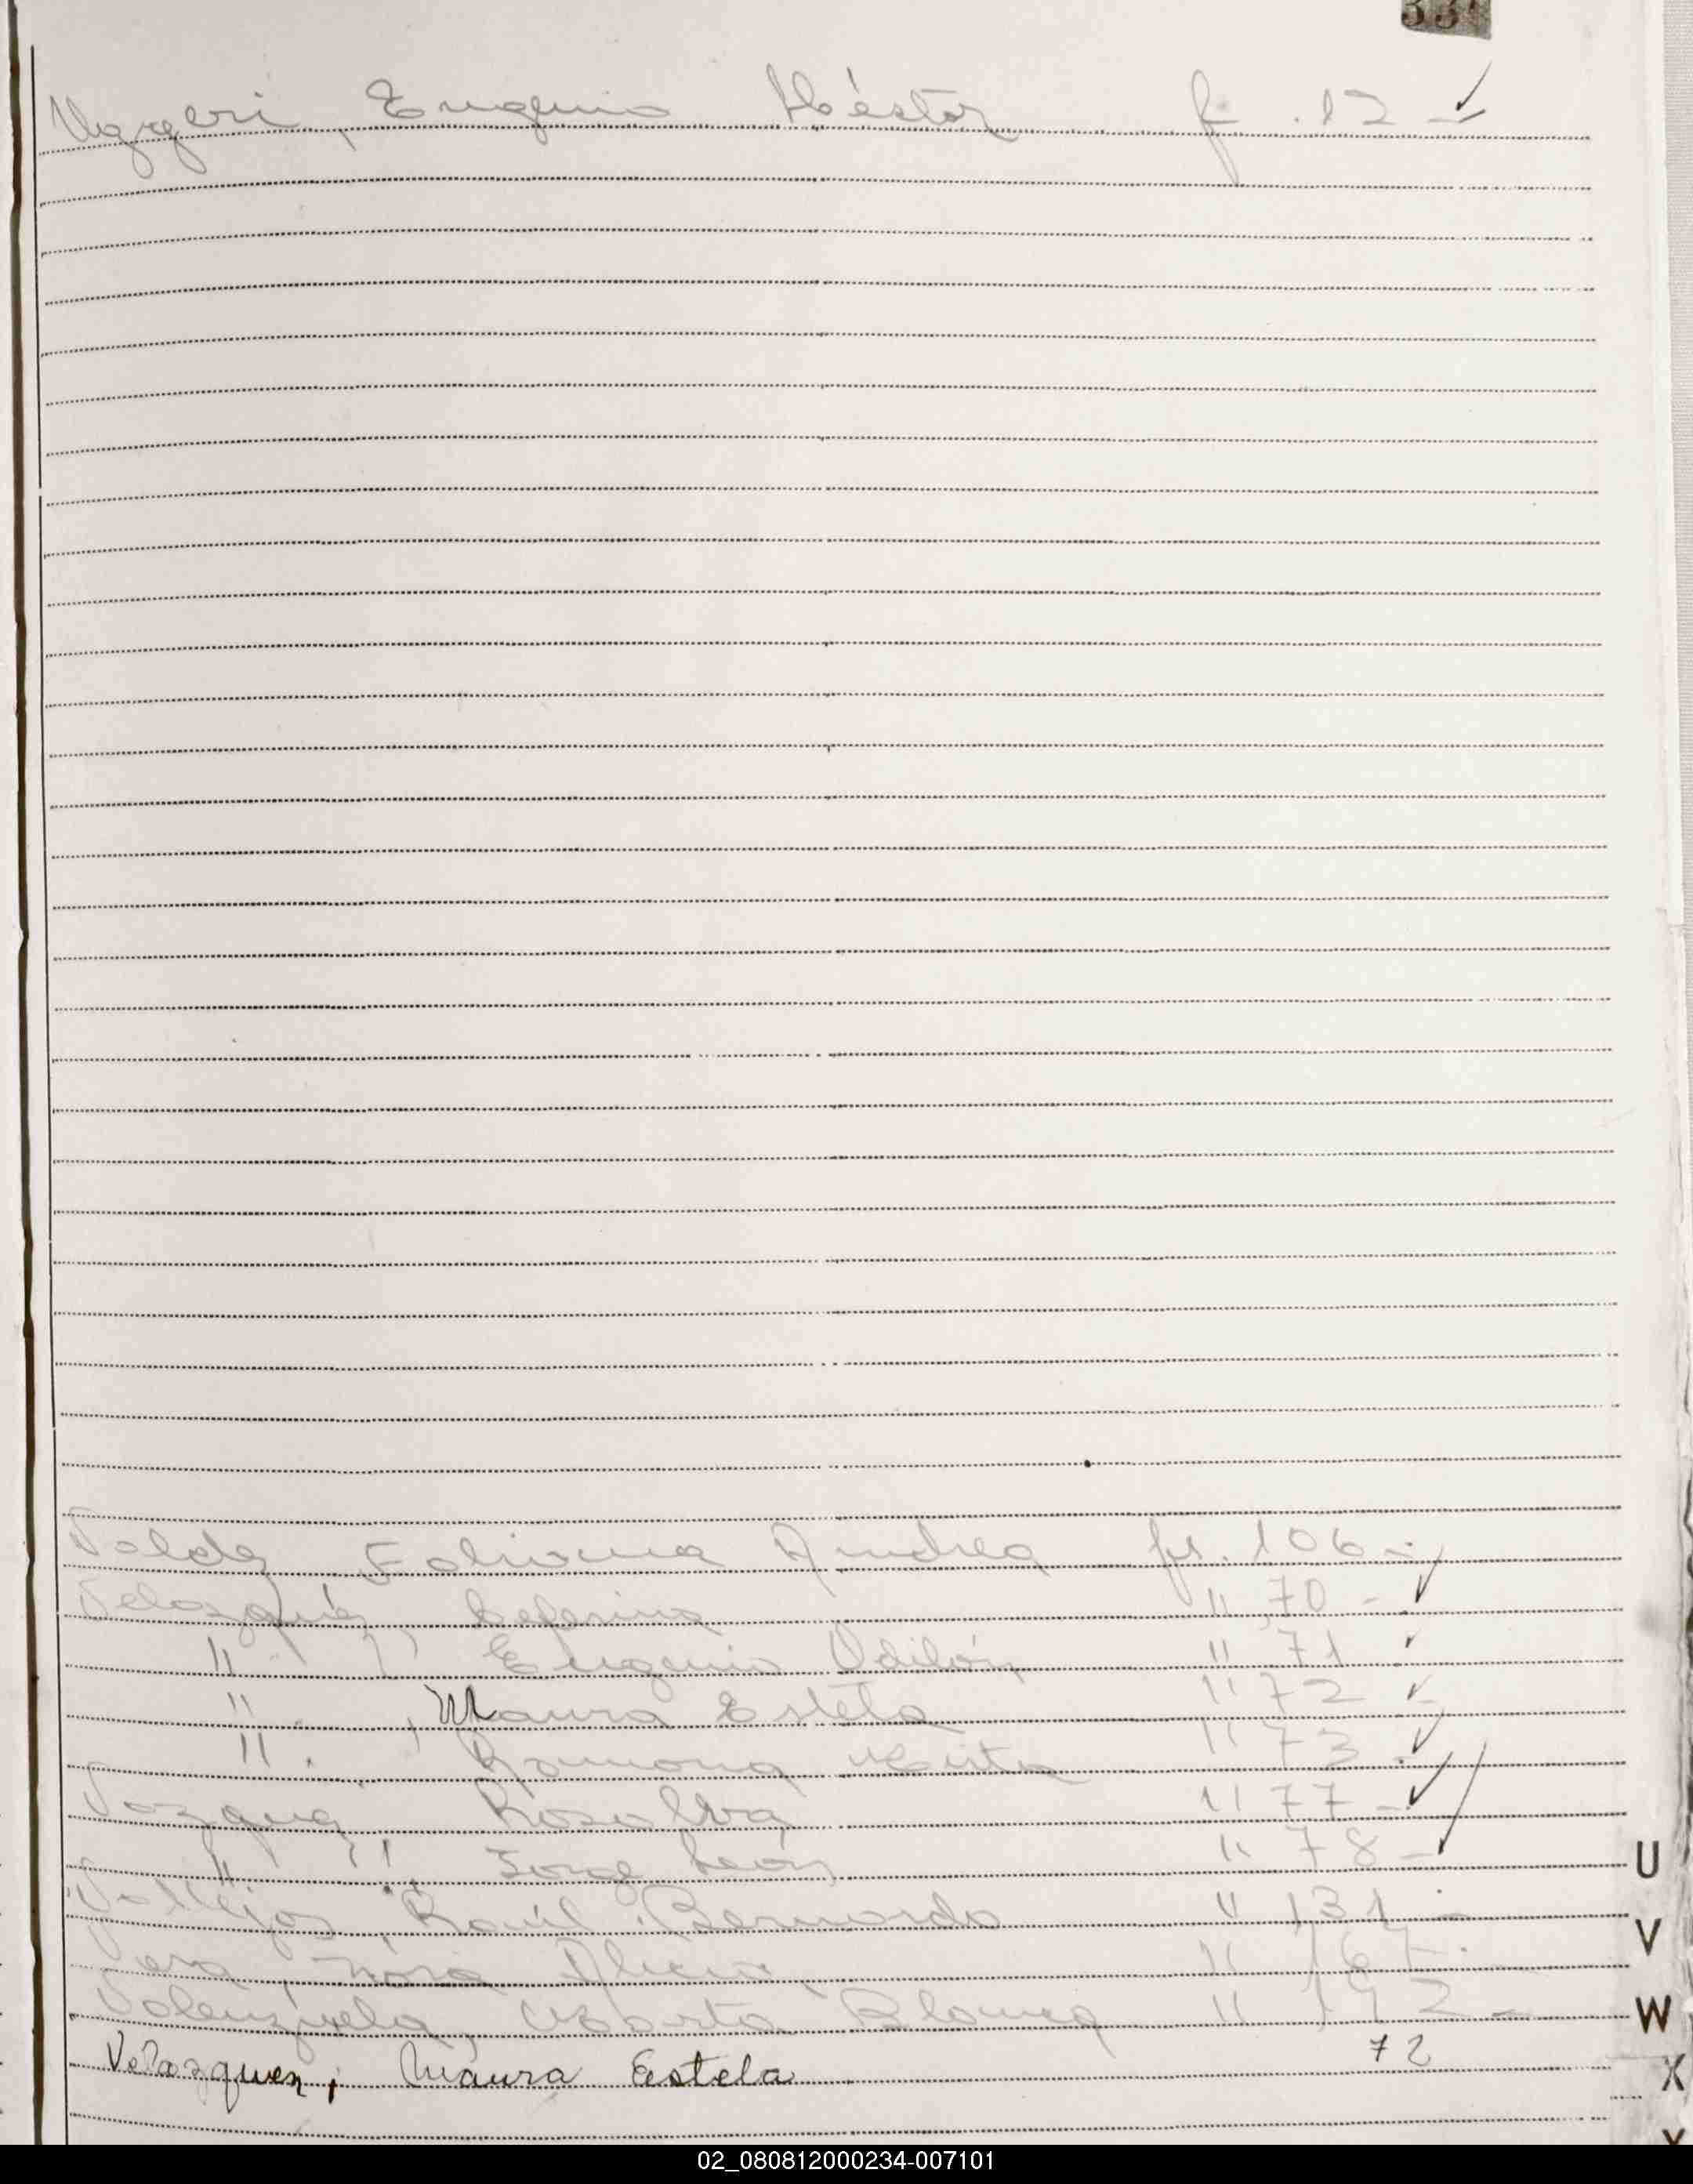 331
Uggeri, Eugenio Héstor f. 12 -
Valdez Fabiana Andrea fs. 106 -
Velazquez, Ceferina " 70 -
" , Eugenio Odilón " 71 -
" , Maura Estela " 72 -
" . Ramona Mirta " 73 -
Vazquez, Rosalba " 77 -
" , Jorge León " 78 -
Vallejos, Raúl Bernardo " 131 -
Vera, Nora Alicia " 167 -
Valenzuela, Marta Blanca " 192 -
Velazquez, Maura Estela 72
U
V
W
X
Y
02_080812000234-007101